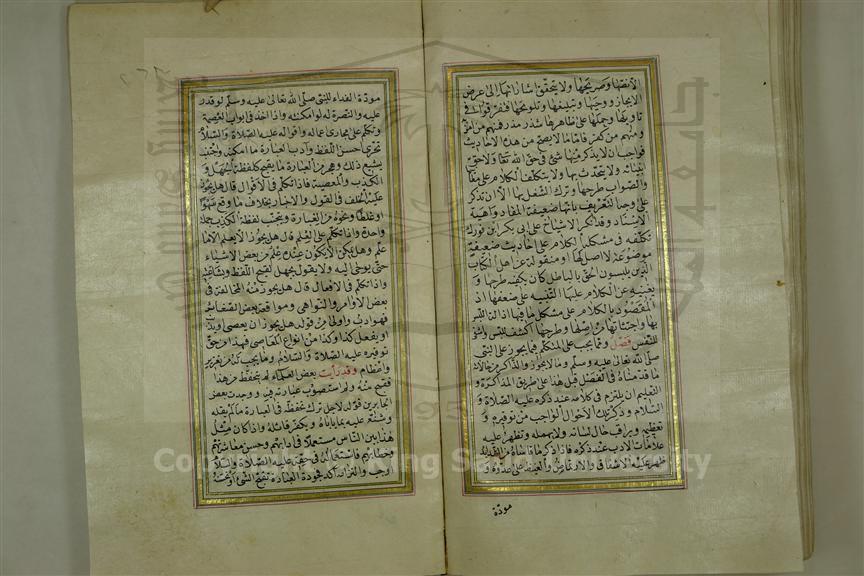 الانقضا وصريحها ولا يتحقق اشاراتها الى غرض
الايجاز ووحيها وتبليغها وتلويحها فتفرقوا في
تاويلها وحملها على ظاهرها شذر مذر فمنهم من آمن
ومنهم من كفر فاما ما لا يصح من هذه الاحاديث
فواجب ان لا يذكر منها شئ في حق الله تعالى ولا حق
انبيائه ولا يتحدث بها ولا يتكلف الكلام على معانيها
والصواب طرحها وترك الشغل بها الا ان تذكر
على وجه التعريف بانها ضعيفة المقاد واهية
الاسناد وقد انكر الاشياخ على ابي بكر ابن فورك
تكلفه في مشكله الكلام على احاديث ضعيفة
موضوعة لا اصل لها او منقولة عن اهل الكتاب
الذين يلبسون الحق بالباطل كان يكفيه طرحها و
يغنيه عن الكلام عليها التنبيه على ضعفها اذ
المقصود بالكلام على مشكل ما فيها ازالة اللبس
بها واجتثاثها من اصلها وطرحها اكشف للبس واشفى
للنفس فصل ومما يجب على المتكلم فيما يجوز على النبي
صلى الله تعالى عليه وسلم وما لا يجوز والذاكر من حالاته
ما قدمناه في الفصل قبل هذا على طريق المذاكرة و
التعليم ان يلتزم في كلامه عند ذكره عليه الصلاة و
السلام وذكر تلك الاحوال الواجب من توقيره و
تعظيمه ويراقب حال لسانه ولا يهمله وتظهر عليه
علامات الادب عند ذكره فاذا ذكر ما قاساه من الشدائد
ظهر عليه الاشفاق والارتماض والغيظ على عدوه و
مودة
مودة الفداء للنبي صلى الله تعالى عليه وسلم لو قدر
عليه والنصرة له لو امكنته واذا اخذ في ابواب العصمة
وتكلم على مجاري اعماله واقواله عليه الصلاة والسلام
تحرى احسن اللفظ وادب العبارة ما امكنه واجتنب
بشيع ذلك وهجر من العبارة ما يقبح كلفظة الجهل و
الكذب والمعصية فاذا تكلم في الاقوال قال هل يجوز
عليه الخلف في القول والاخبار بخلاف ما وقع سهوا
او غلطا ونحوه من العبارة ويتجنب لفظة الكذب جملة
واحدة واذا تكلم على العلم قال هل يجوز الا يعلم الا ما
علم وهل يمكن الا يكون عنده علم من بعض الاشياء
حتى يوحى اليه ولا يقول بجهل لقبح اللفظ وبشاعته
واذا تكلم في الافعال قال هل يجوز منه المخالفة في
بعض الاوامر والنواهي ومواقعة بعض الصغائر
فهو ادب واولى من قوله هل يجوز ان يعصي او يذنب
او يفعل كذا وكذا من انواع المعاصي فهذا من حق
توقيره عليه الصلاة والسلام وما يجب له من تعزيز
واعظام وقد رأيت بعض العلماء لم يتحفظ من هذا
فقبح منه ولم استصوب عبارته فيه ووجدت بعض
الجائرين قوله لاجل ترك تحفظه في العبارة ما لم يقله
وشنع عليه بما ياباه ويكفر قائله واذا كان مثل
هذا بين الناس مستعملا في ادابهم وحسن معاشرتهم
وخطابهم فاستعماله في حقه عليه الصلاة والسلام
اوجب والتزامه آكد فجودة العبارة تقبح الشئ او تحسنه
Copyright © King Saud University
جامعة الملك سعود
1957